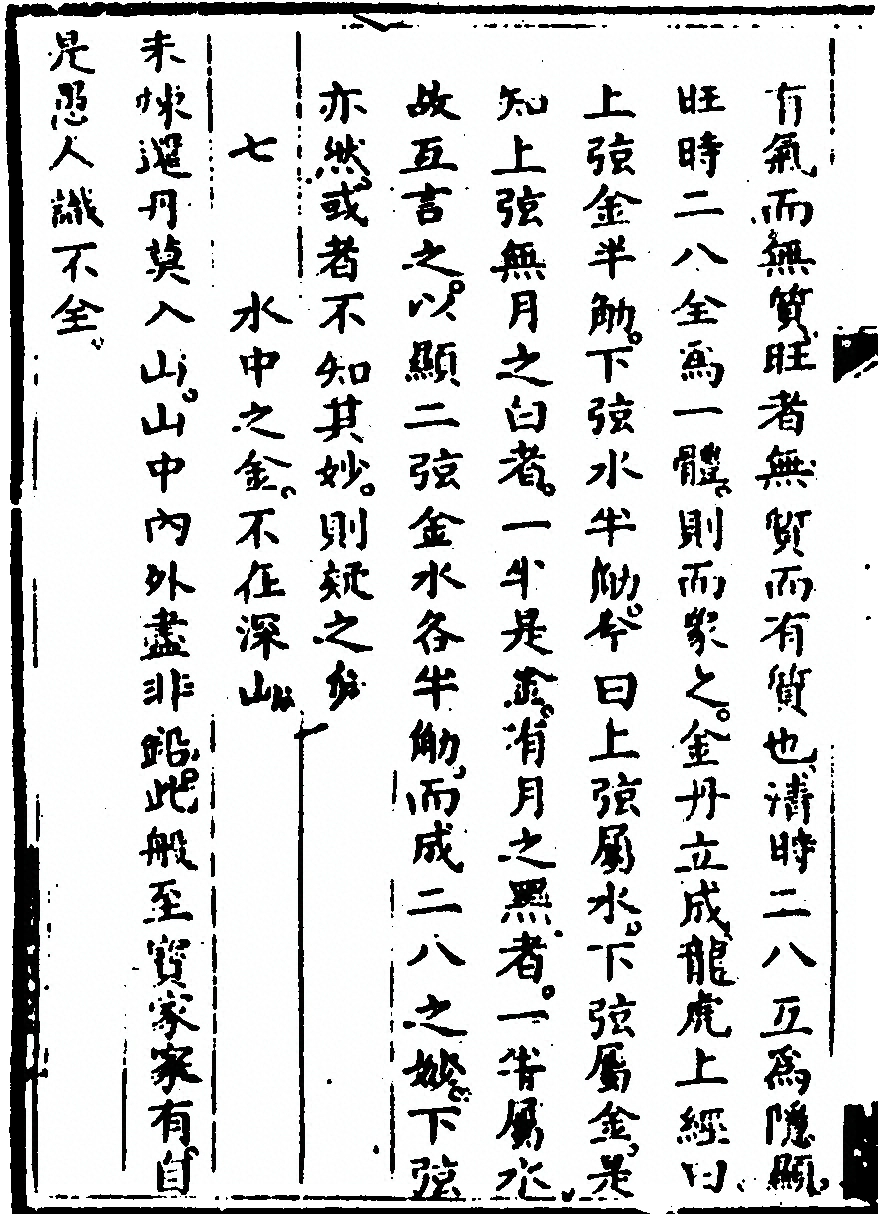 有氣而無質旺者無質而有質也濤時二八互爲隱顯
旺時二八全爲一體。則而象之。金丹立成龍虎上經曰
上弦金半觔。下弦水半觔。今曰上弦屬水。下弦屬金是
知上弦無月之白者。一半是金。有月之黑者。一半屬水
故互言之。以顯二弦金水各半觔而成二八之妙。下弦
亦然。或者不知其妙。則疑之
七 水中之金。不在深山
未煉還丹莫入山。山中內外盡非鉛。此般至寶家家有自
是愚人識不全。